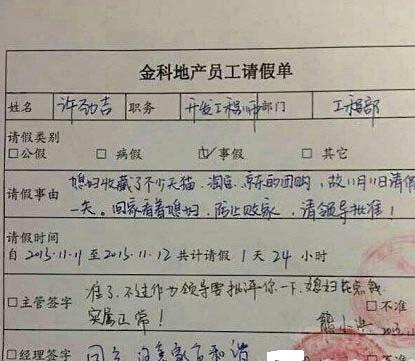 金科地产员工请假单
姓名 许劲吉 职务 开发工程师 部门 工程部
请假类别
□公假 □ 病假 ☑事假 □ 其它
请假事由 媳妇收藏了不少天猫、淘宝、京东的团购,故11月11日请假
一天。回家看着媳妇,防止败家,请领导批准!
请假时间
自 2015.11.11 至2015.11.12 共计请假 1 天 24 小时
□主管签字 准了,不过作为领导要批评你一下,媳妇在花钱
实属正常! □不准
熊小
□经理签字 同 家 和谐 □不准